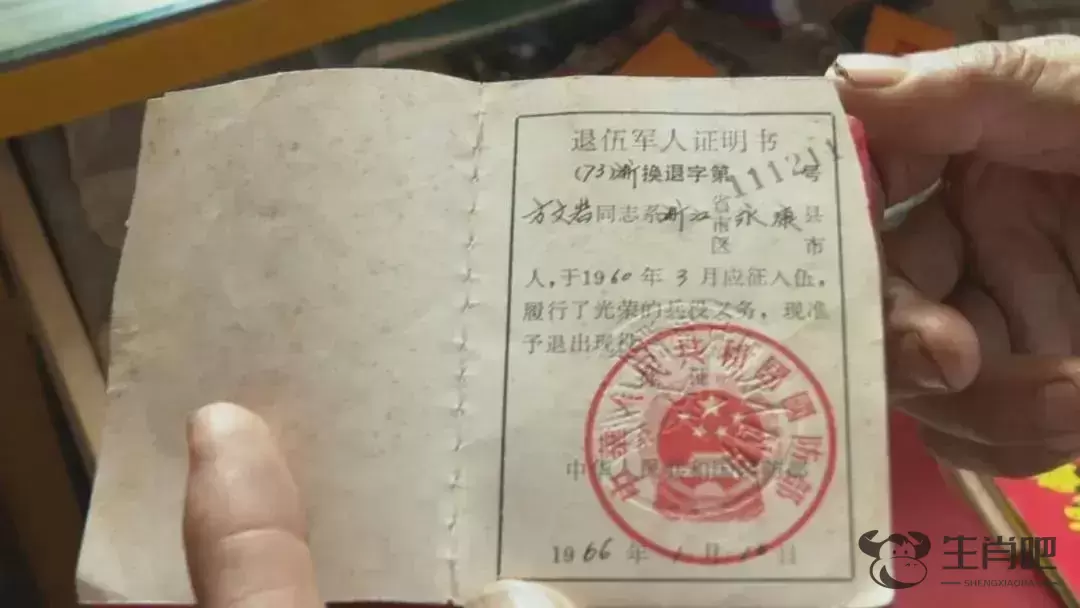 退伍军人证明书
(73)浙换退字第111211号
方文岩同志系浙江省市区永康县市
人，于1960年3月应征入伍，
履行了光荣的兵役义务，现准
予退出现役
中华人民共和国国防部
中华人民共和国国防部
1966年1月10日
生肖吧
SHENGXIAOBA